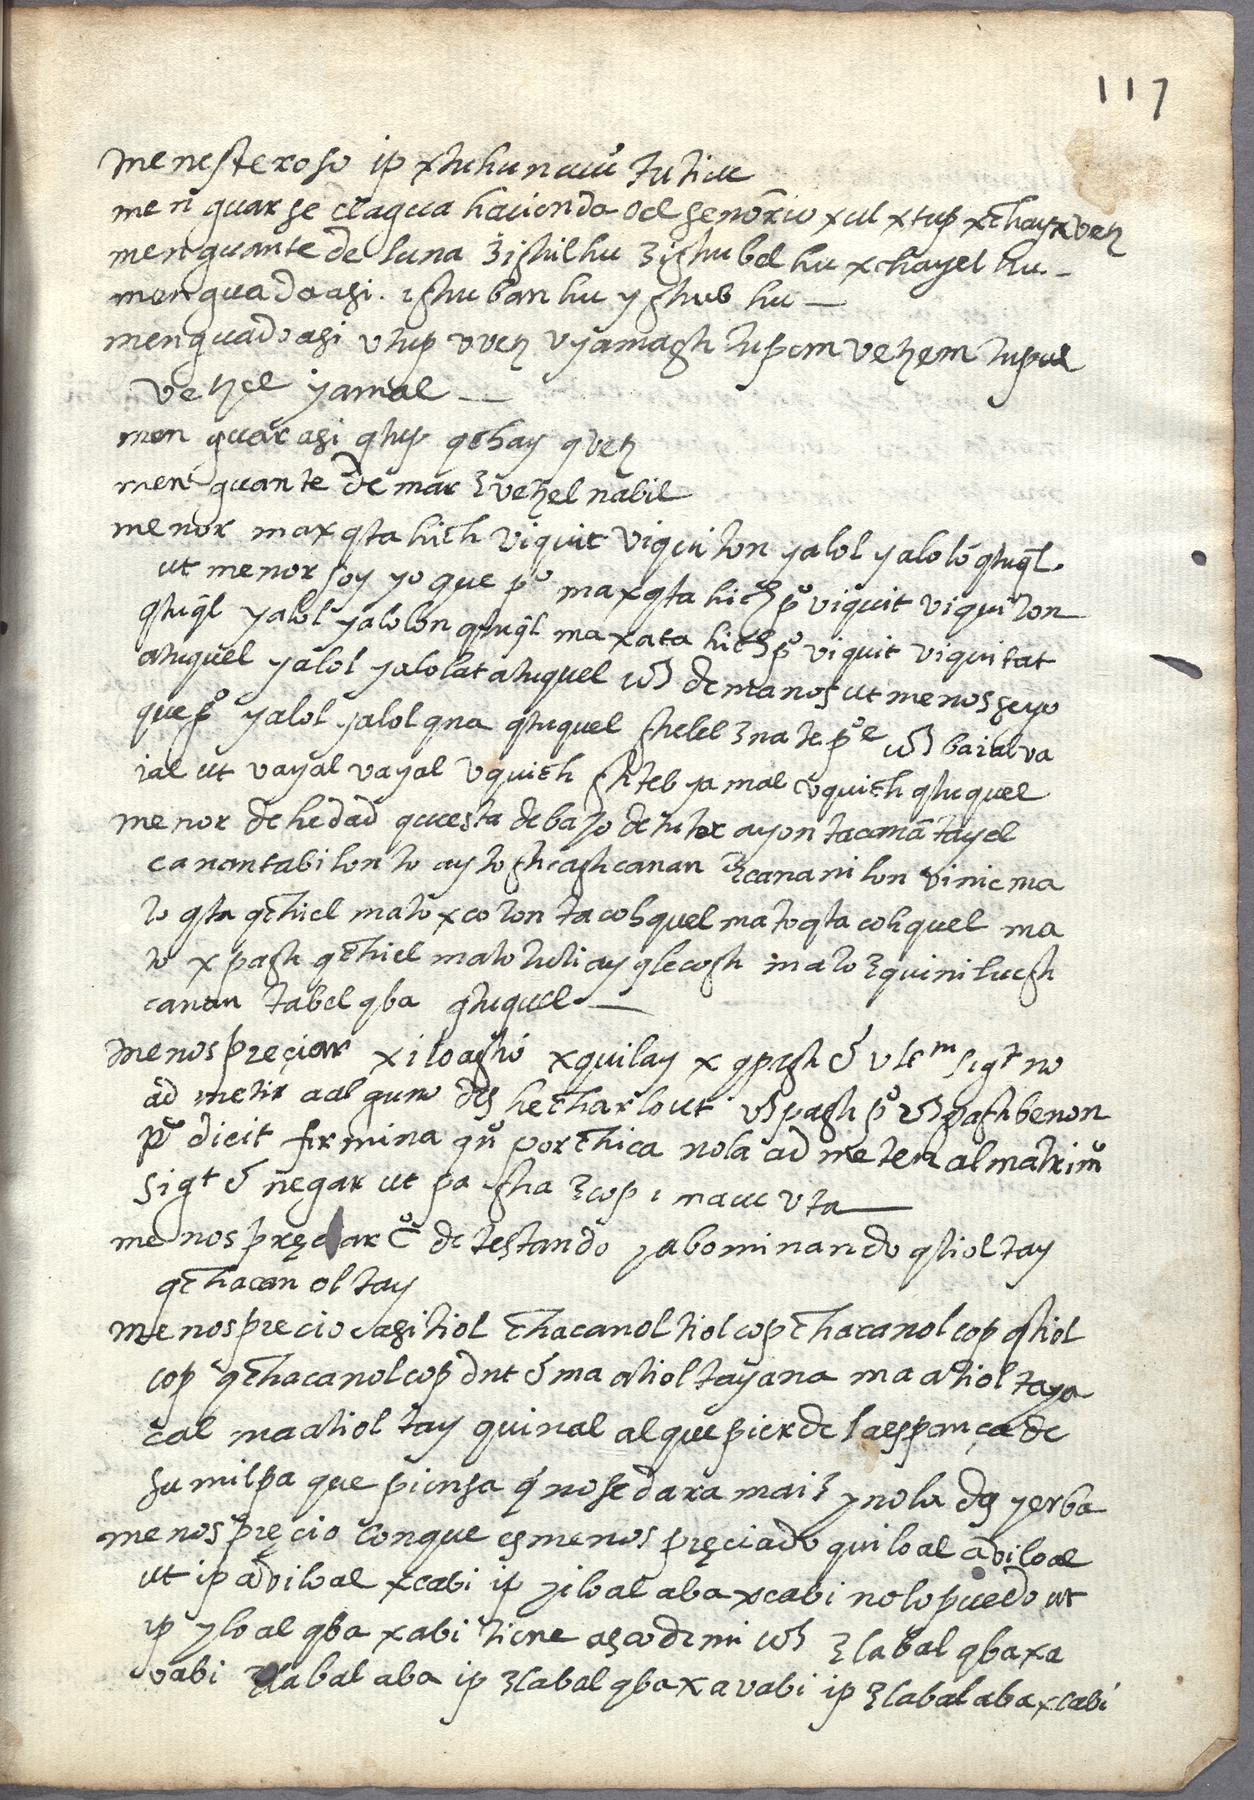 117
menesteroso ip xtuhunauu tutiuc
menguarse elagua haciendo del senorio xul xtup xchay xvetz
menguante de luna zights hu zightubel hu xchayel hu
menguado asi. ightuban hu y ghtub hu
menguado asi vtup vvetz vyamagh tupem vetzem tupul
vetzel yamal
menguar asi qtup qchay qvetz
menguante de mar zvetzel nabil
menor maxqta hich viquit viquiton yalol yalolon qtuql.
ut menor soy yo que po maxqta hich po viquit viquiton
qtuql yalol yalolon qtuql maxata hich po viquit viquitat
atuquel yalol yalolat atuquel de manos ut menos seyo
que po yalol yalol qna qtuquel ghelel zna te po baial va
ial ut vayal vayal vquich ghteb yamal vquich qtuquel
menor de hedad questa debaxo de tutor ayon tacanan tayel
canantabilon to ay to ghcaghcanan zcananilon vinic ma
to qta qchiel mato xco ton tacohquel mato qta cohquel ma
to xpagh qchiel mato tutiay qlecogh mato zquiniluegh
canan tabel qba qtuquel
menospreçiar xiloaghó xquilay xqpagh ć vltm sigt no
admetir a alguno des hecharlo ut pagh po paghbenon
po dicit firmina qn por chica nola admeten al matrimo
sigt ć negar ut pa gha zcop i mauc vta
menospręciar č detestando y abominando qtiol tay
qchacanol tay
menosprecio asi tiol chacanol tiolcop chacanolcop qtiol
cop qchacanolcop dnt ć ma atiol tayana ma atiol taya
cal ma atiol tay quinal al que pierde la espança de
su milpa que piensa q no se dara maiz y nola des yerba
menospręcio con que es menospręciado quiloal aviloal
ut ip aviloal xcabi ip yiloal aba xcabi nolopuedo ut
ip yloal qba xabi tiene asco de mi zlabal qba xa
vabi zlabal aba ip zlabal qba xavabi ip zlabal aba xcabi